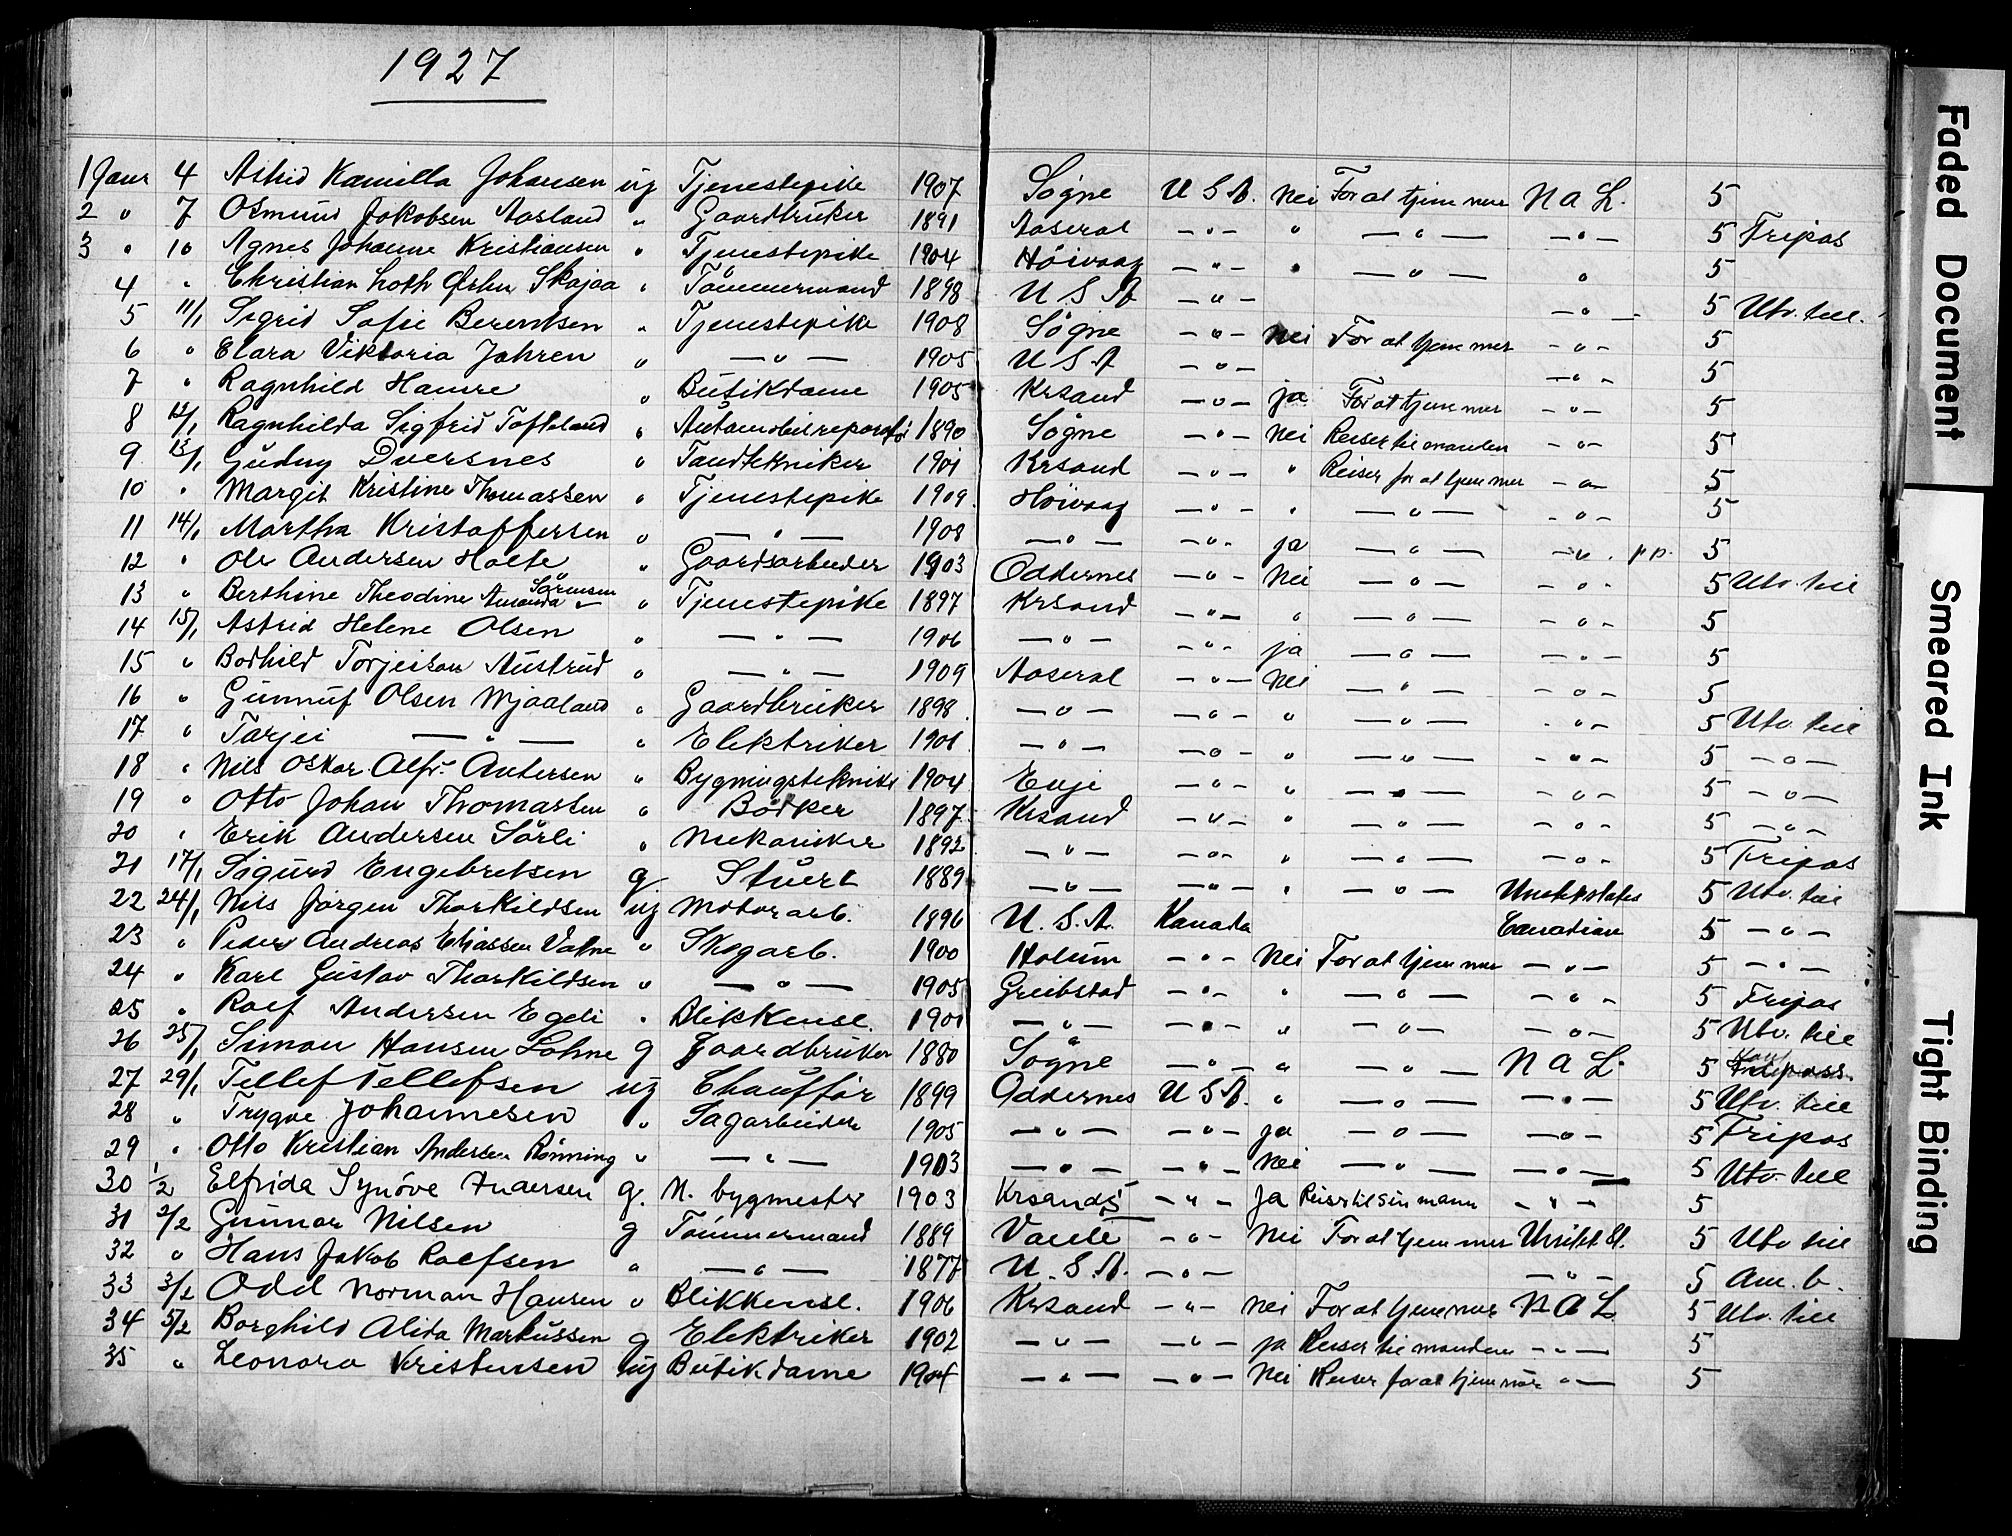 1927
1 Janr 4 Astrid Kamilla Johansen ug Tjenestepike 1907 Søgne U S A. Nei For at tjene mer N A L. 5
2 " 7 Osmund Jakobsen Aasland " Gaardbruker 1891 Aaseral — " — " — " — — " — 5 Fripas
3 " 10 Agnes Johanne Kristiansen " Tjenestepike 1904 Høivaag — " — " — " — " 5
4 " Christian Loth Ørbn Skajaa " Tømmermand 1898 U S A — " — — " — 5 Utv. till.
5 11/1 Sigrid Sofie Berentsen " Tjenestepike 1908 Søgne — " — Nei For at tjene mer — " — 5
6 " Clara Viktoria Jahren " — " — 1905 U S A — " — — " — 5
7 " Ragnhild Hamre " Butikdame 1905 Krsand — " — ja For at tjene mer — " — 5
8 12/1 Ragnhilda Sigfrid Tofteland " Automobilreparatør 1890 Søgne — " — Nei Reiser til manden — " — 5
9 13/1 Gudny Dversnes " Tandtekniker 1901 Krsand — " — " Reiser for at tjene mer — " — 5
10 " Margit Kristine Thomassen " Tjenestepike 1909 Høivaag — " — " — " — — " — 5
11 14/1 Martha Kristoffersen " — " — 1908 — " — — " — ja — " — — " — p.p. 5
12 " Ole Andersen Holte " Gaardsarbeider 1903 Oddernes — " — Nei — " — — " — 5 Utv. till
13 " Berthine Theodine Amanda Sørensen " Tjenestepike 1897 Krsand — " — " — " — — " — 5
14 15/1 Astrid Helene Olsen " — " — 1906 — " — — " — ja — " — — " — 5
15 " Bodhild Torjeisen Austrud " — " — 1909 Aaseral — " — Nei — " — — " — 5
16 " Gunnuf Olsen Mjaaland " Gaardbruker 1898 — " — — " — " — " — — " — 5 Utv. till
17 " Tarjei — " — " Elektriker 1901 — " — — " — " — " — — " — 5 — " —
18 " Nils Oskar Alfr. Antersen " Bygningstekniker 1904 Evje — " — " — " — — " — 5 — " —
19 " Otto Johan Thomassen " Bødker 1897 Krsand — " — " — " — — " — 5 — " —
20 " Erik Andersen Sørli " Mekaniker 1892 — " — — " — " — " — — " — 5 Fripas
21 17/1 Sigurd Engebretsen g Stuert 1889 — " — — " — " — " — Unitedstates 5 Utv. till
22 24/1 Nils Jørgen Thorkildsen ug Motorarb. 1896 U. S. A. Kanada Canadian 5 — " —
23 " Peder Andreas Eliassen Valne " Skogarb. 1900 Holum — " — Nei For at tjene mer — " — 5 — " —
24 " Karl Gustav Thorkildsen " — " — 1905 Greibstad — " — " — " — — " — 5 Fripas
25 " Rolf Andersen Egeli " Blikkensl. 1901 — " — — " — " — " — — " — 5 Utv. till
26 25/1 Simon Hansen Lohne g Gaardbruker 1880 Søgne — " — " — " — N A L. 5
27 29/1 Tellef Tellefsen ug Chauffør 1899 Oddernes U S A. " — " — — " — 5 Utv. till
28 " Trygve Johannesen " Sagarbeider 1905 — " — — " — ja — " — — " — 5 Fripas
29 " Otto Kristian Andersen Rønning " — " — 1903 — " — — " — Nei — " — — " — 5 Utv. till
30 1/2 Elfrida Synøve Andersen g. M. bygmester 1903 Krsands — " — Ja Reiser til sin mann — " — 5
31 2/2 Gunnar Nilsen g Tømmermand 1889 Vanse — " — Nei For at tjene mer United St. 5 Utv till
32 " Hans Jakob Rolfsen " — " — 1877 U. S. A. — " — — " — 5 Am. b.
33 3/2 Odd Norman Hansen " Blikkensl. 1906 Krsand — " — Nei For at tjene mer N A L 5 Utv. till
34 5/2 Borghild Alida Markussen g Elektriker 1902 — " — — " — ja Reiser til manden — " — 5
35 " Leonora Kristensen ug Butikdame 1904 — " — — " — Nei Reiser for at tjene mer — " — 5
Faded Document
Smeared Ink
Tight Binding